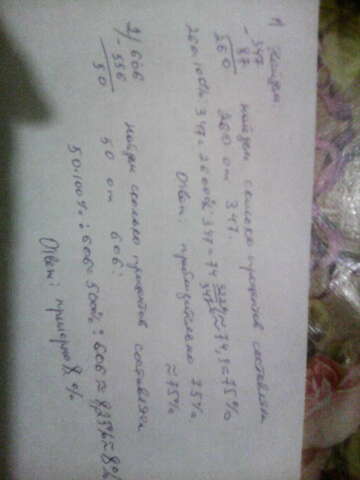 1) Найдем
-347
87
260
найдем сколько процентов составляет
260 от 347.
260·100%:347=26000%:347=74 322/347%≈74,9≈75%
Ответ: приблизительно 75%
≈75%
2) -606
556
50
найдем сколько процентов составляет
50 от 606:
50·100%:606=5000%:606≈8,25%≈8%
Ответ: примерно 8%